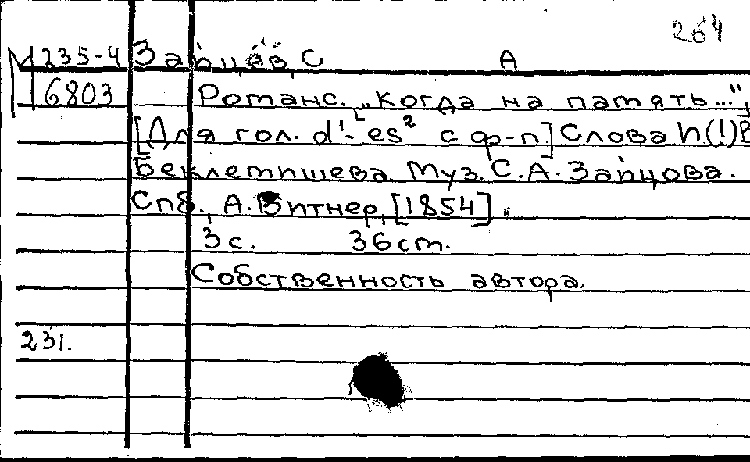 264
М 235-4 Зайцев, С А
6803 Романс. „Когда на память...",
[Для гол. d¹-es² с ф-п] Слова Н(!)В
Беклемишева Муз. С.А. Зайцова.
Спб., А. Битнер, [1854].
3 с. 36 см.
Собственность автора.
231.